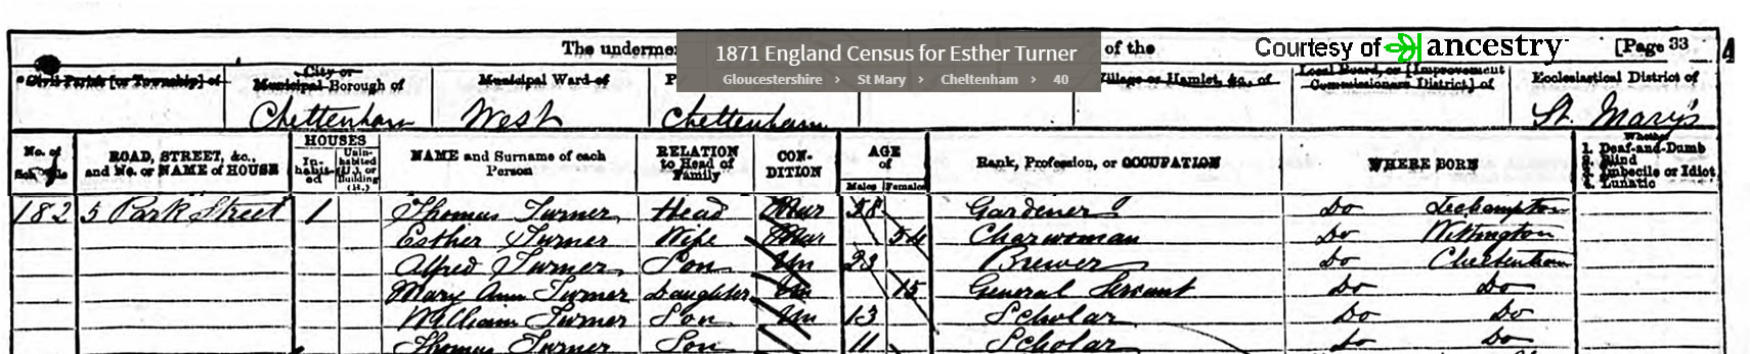 The underme
1871 England Census for Esther Turner
Gloucestershire › St Mary › Cheltenham › 40
of the
Courtesy of ancestry
[Page 33
4
Civil Parish [or Township] of
City or
Municipal Borough of
Municipal Ward of
P
Village or Hamlet, &c., of
Local Board, or [Improvement
Commissioners District] of
Ecclesiastical District of
Cheltenham West Cheltenham St. Mary's
No. of
Schedule
ROAD, STREET, &c.,
and No. or NAME of HOUSE
HOUSES
In-
habit-
ed
Unin-
habited
(U.), or
Building
(B.)
NAME and Surname of each
Person
RELATION
to Head of
Family
CON-
DITION
AGE
of
Males Females
Rank, Profession, or OCCUPATION
WHERE BORN
Whether
1. Deaf-and-Dumb
2. Blind
3. Imbecile or Idiot
4. Lunatic
182 5 Park Street 1 Thomas Turner Head Mar 58 Gardener Do Leckhampton
Esther Turner Wife Mar 54 Charwoman Do Withington
Alfred Turner Son Un 23 Brewer Do Cheltenham
Mary Ann Turner Daughter Un 15 General Servant Do Do
William Turner Son Un 13 Scholar Do Do
Thomas Turner Son 11 Scholar Do Do